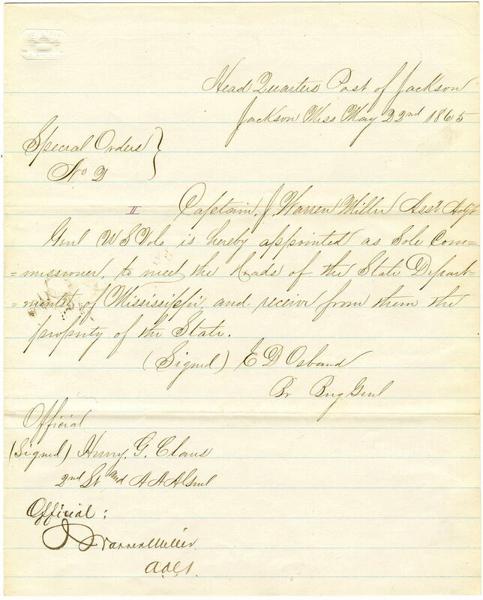 Head Quarters Post of Jackson
Jackson Miss May 22nd 1865
Special Orders }
No 2
II Captain J Warren Miller Asst Adjt
Genl U S Vols is hereby appointed as Sole Com-
-missioner, to meet the Heads of the State Depart-
-ments of Mississippi and receive from them the
property of the State.
(Signed) E D Osband
Br Brig Genl
Official
(Signed) Henry. G. Claus
2nd Lt and A A A Genl
Official:
J Warren Miller
A.A.G.